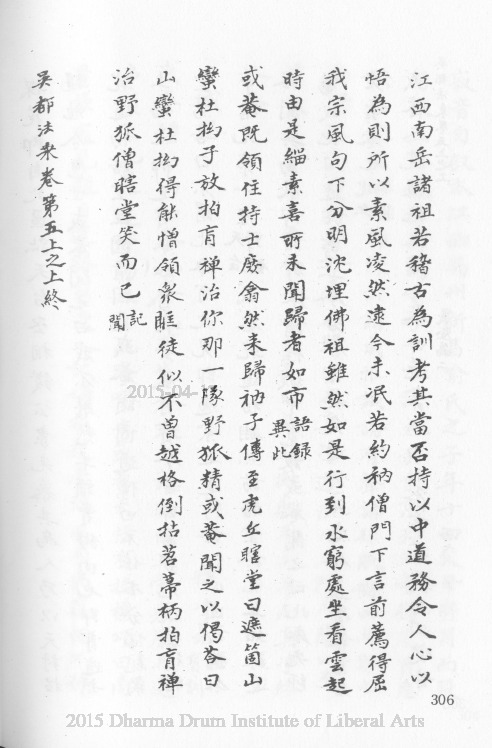 江西南岳諸祖若稽古為訓考其當否持以中道務令人心以
悟為則所以素風凌然遠今未泯若約衲僧門下言前薦得屈
我宗風句下分明沈埋佛祖雖然如是行到水窮處坐看雲起
時由是緇素喜所未聞歸者如市語錄異此
或菴既領住持士庶翕然來歸衲子傳至虎丘瞎堂曰遮箇山
蠻杜拗子放拍盲禪治你那一隊野狐精或菴聞之以偈答曰
山蠻杜拗得能憎領眾匡徒似不曾越格倒拈苕帚柄拍盲禪
治野狐僧瞎堂笑而已記聞
吳都法乘卷第五上之上終
306
2015-04-1
2015 Dharma Drum Institute of Liberal Arts